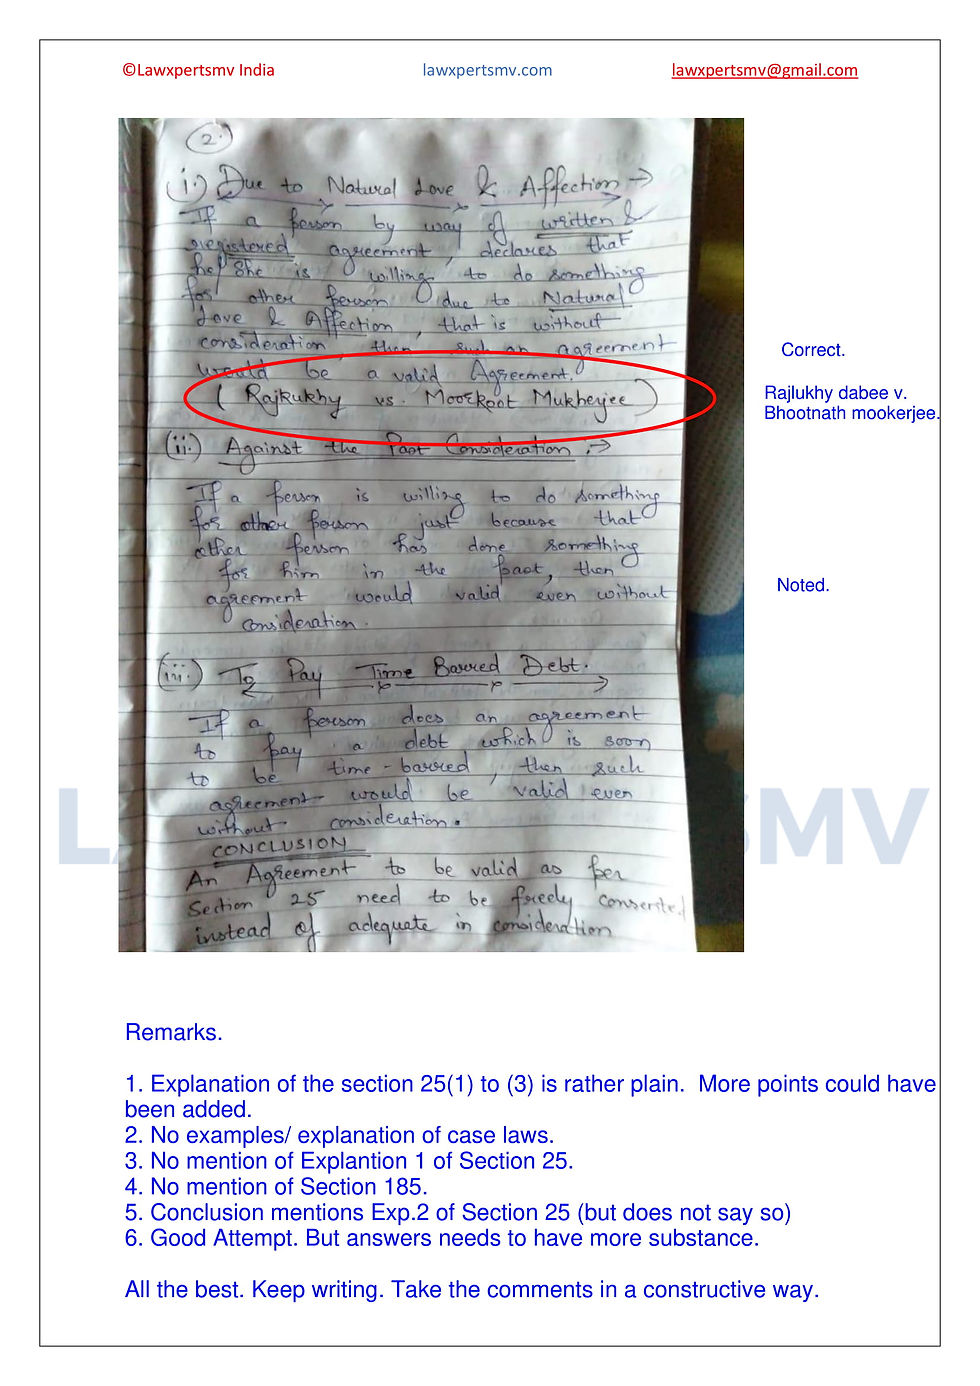 ©Lawxpertsmv India lawxpertsmv.com lawxpertsmv@gmail.com
2.
i.) Due to Natural Love & Affection →
If a person by way of written &
registered agreement, declares that
he/she is willing to do something
for other person due to Natural
Love & Affection, that is without
consideration, then such an agreement
would be a valid Agreement.
Correct.
( Rajkukhy vs. Mookoot Mukherjee )
Rajlukhy dabee v.
Bhootnath mookerjee.
(ii.) Against the Past Consideration :→
If a person is willing to do something
for other person just because that
other person has done something
for him in the past, then
agreement would valid even without
consideration.
Noted.
(iii.) To Pay Time Barred Debt.
If a person does an agreement
to pay a debt, which is soon
to be time-barred, then such
agreement would be valid even
without consideration.
CONCLUSION
An Agreement to be valid as per
Section 25 need to be freely consented
instead of adequate in consideration
Remarks.
1. Explanation of the section 25(1) to (3) is rather plain. More points could have
been added.
2. No examples/ explanation of case laws.
3. No mention of Explantion 1 of Section 25.
4. No mention of Section 185.
5. Conclusion mentions Exp.2 of Section 25 (but does not say so)
6. Good Attempt. But answers needs to have more substance.
All the best. Keep writing. Take the comments in a constructive way.